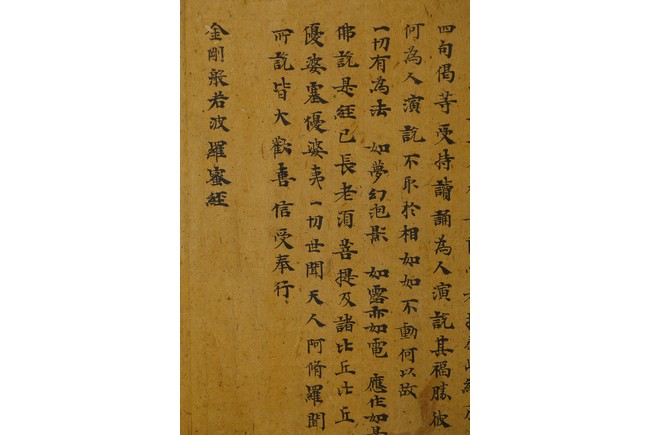 四句偈等受持讀誦為人演說其福勝彼
何為人演說不取於相如如不動何以故
一切有為法 如夢幻泡影 如露亦如電 應作如是
佛說是經已長老須菩提及諸比丘比丘
優婆塞優婆夷一切世間天人阿脩羅聞
所說皆大歡喜信受奉行
金剛般若波羅蜜經